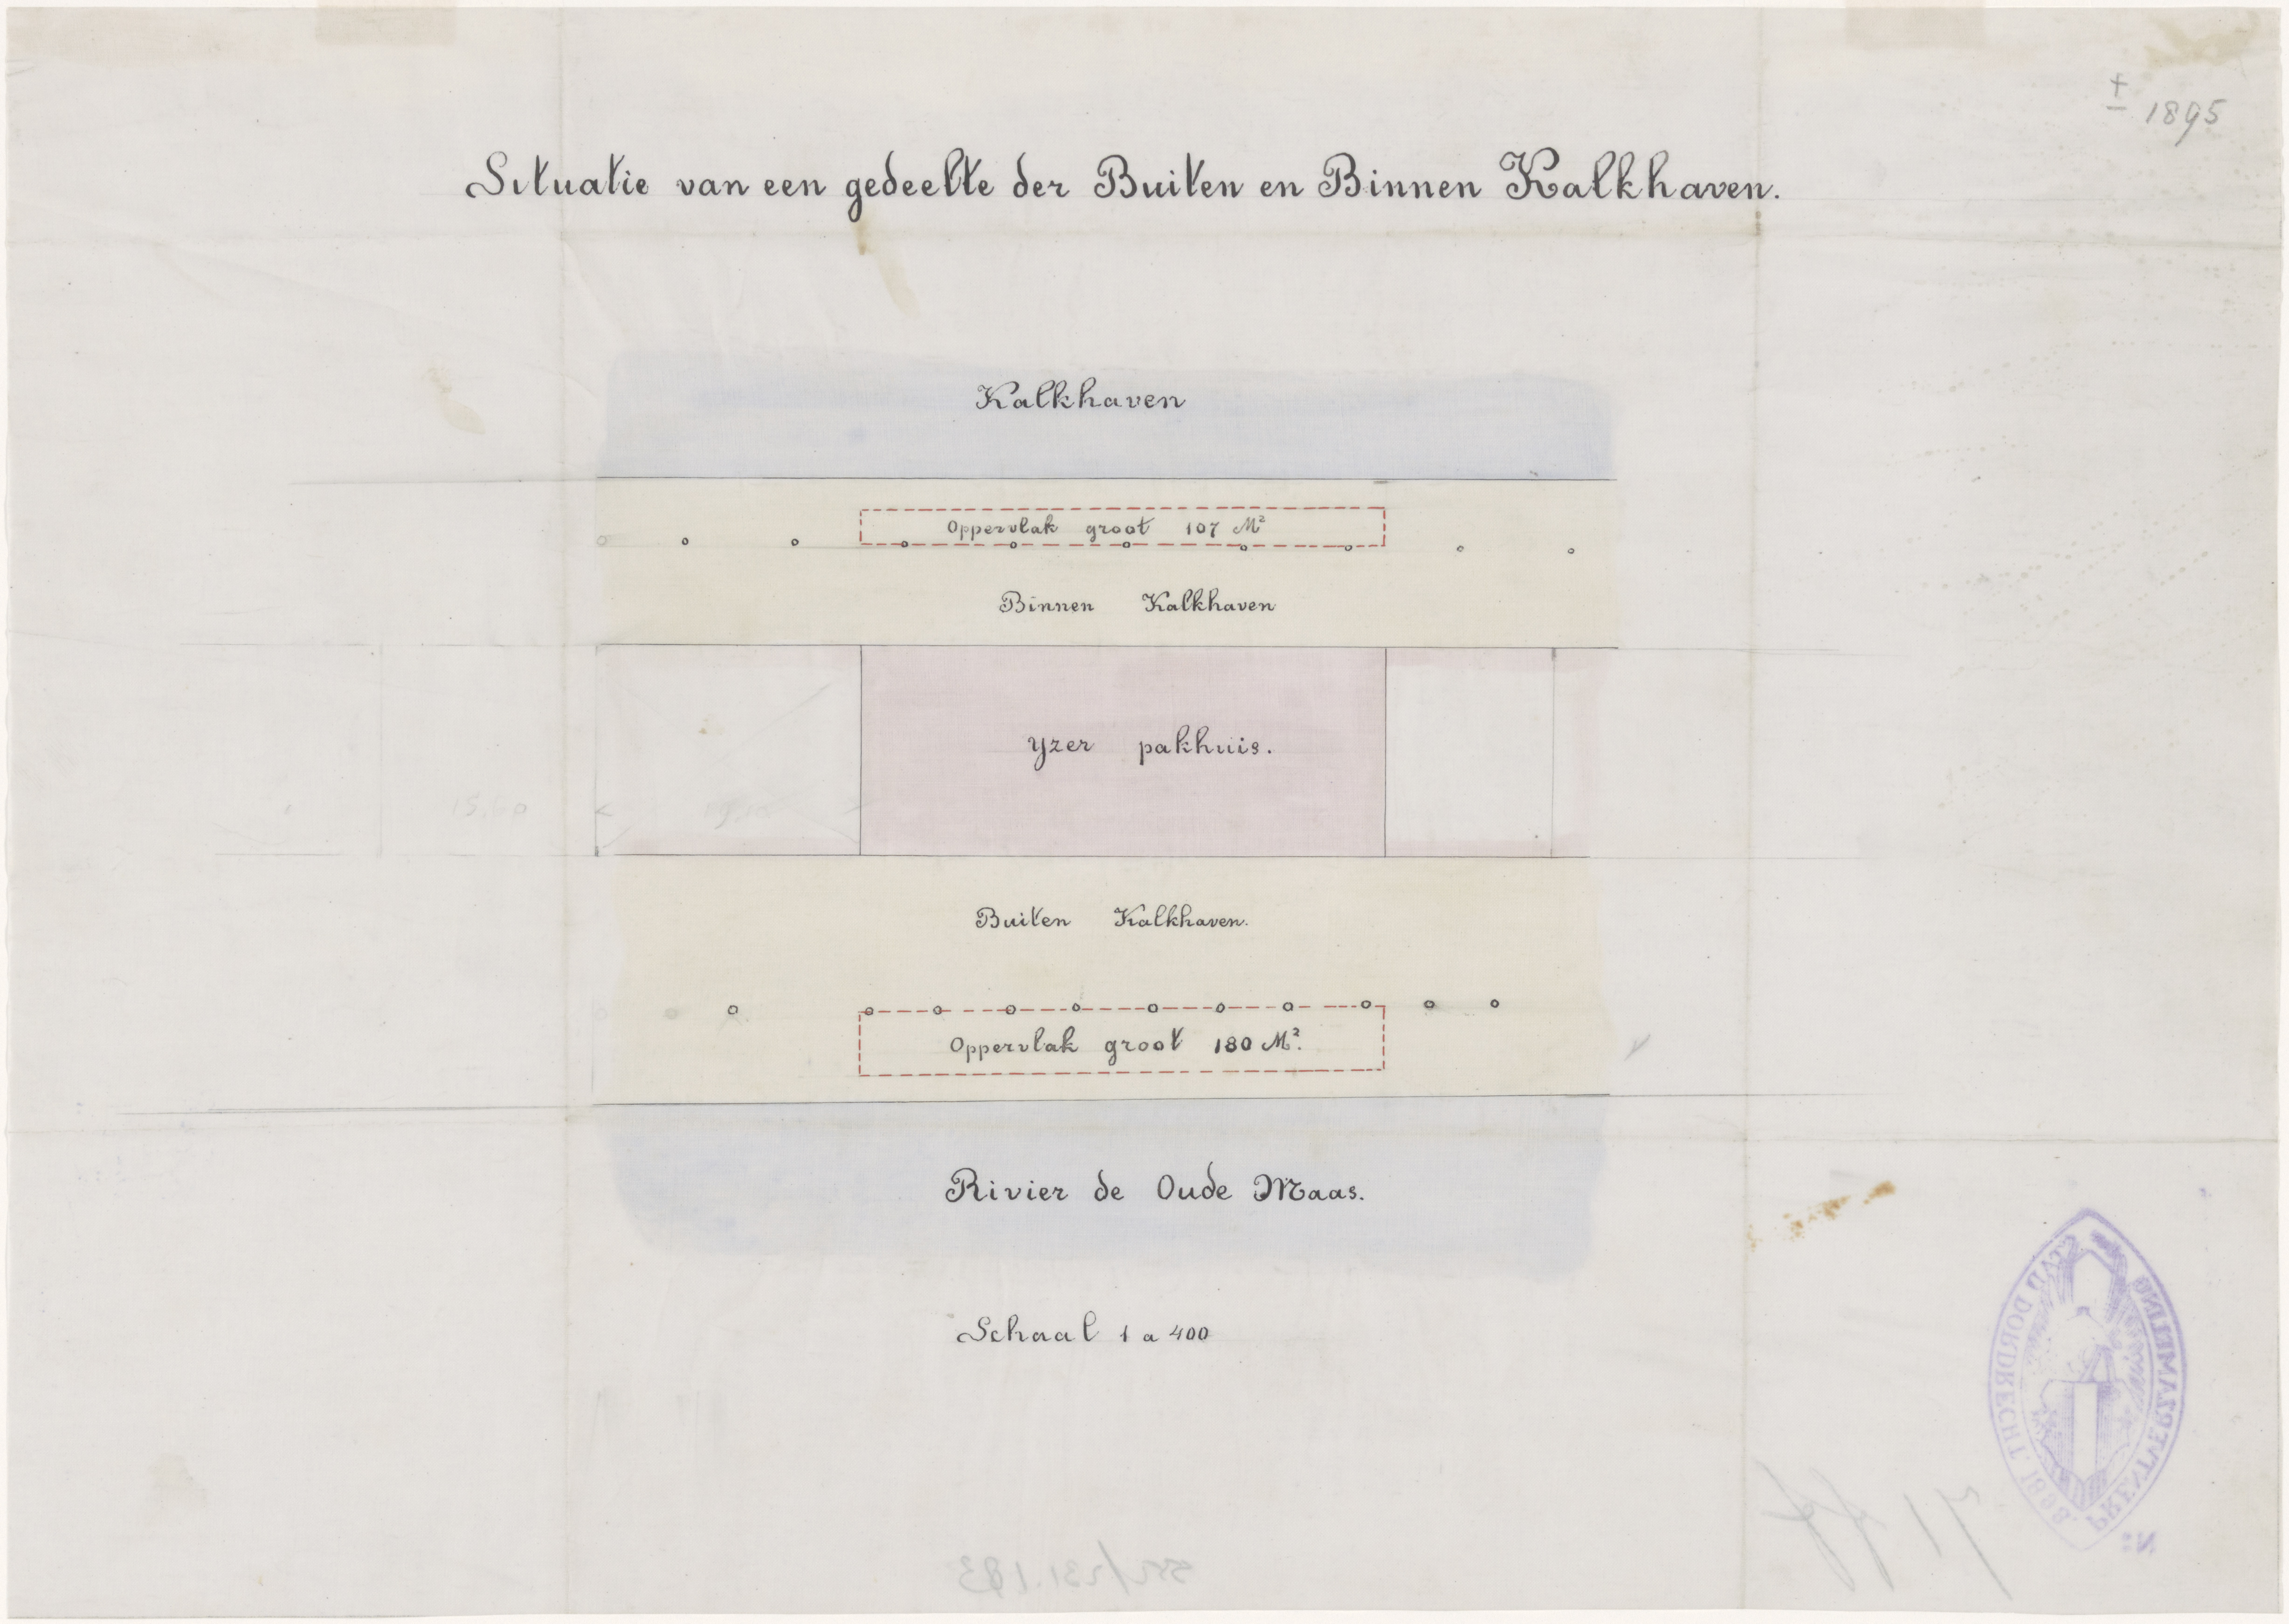 ± 1895
Situatie van een gedeelte der Buiten en Binnen Kalkhaven.
Kalkhaven
Oppervlak groot 107 M²
Binnen Kalkhaven
Yzer pakhuis.
15,60
Buiten Kalkhaven.
Oppervlak groot 180 M².
Rivier de Oude Maas.
Schaal 1 a 400
STAD DORDRECHT 1898.
PRENTVERZAMELING
No
552/231.193